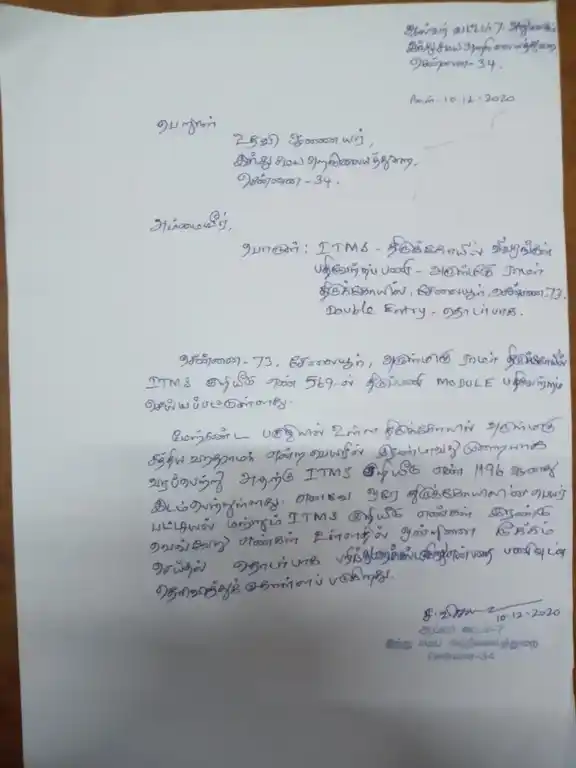 ஆய்வர் வட்டம் 7 அலுவலகம்
இந்து சமய அறநிலையத்துறை
சென்னை - 34.
நாள் - 10.12.2020
பெறுநர்
உதவி ஆணையர்,
இந்து சமய அறநிலையத்துறை,
சென்னை - 34.
அம்மையீர்,
பொருள் : ITMS - திருக்கோயில் விவரங்கள்
பதிவேற்றப் பணி - அருள்மிகு ராமர்
திருக்கோயில், சேலையூர், சென்னை - 73.
Double Entry - தொடர்பாக.
சென்னை - 73, சேலையூர், அருள்மிகு ராமர் திருக்கோயில்
ITMS குறியீடு எண் 569-ல் திருப்பணி MODULE பதிவேற்றம்
செய்யப்பட்டுள்ளது.
மேற்கண்ட பகுதியில் உள்ள திருக்கோயில் அருள்மிகு
என்ற பெயரில் இரண்டாவது முறையாக
வரப்பெற்று அதற்கு ITMS குறியீடு எண் 1196 ஆனது
இடம்பெற்றுள்ளது. எனவே ஒரே திருக்கோயிலின் பெயர்
பட்டியல் மற்றும் ITMS குறியீடு எண்கள் இரண்டு
வெவ்வேறு எண்கள் உள்ளதில் ஒன்றினை நீக்கம்
செய்தல் தொடர்பாக பணிவுடன்
தெரிவித்துக் கொள்ளப் படுகிறது.
10.12.2020
ஆய்வர் வட்டம்-7
இந்து சமய அறநிலையத்துறை
சென்னை-34